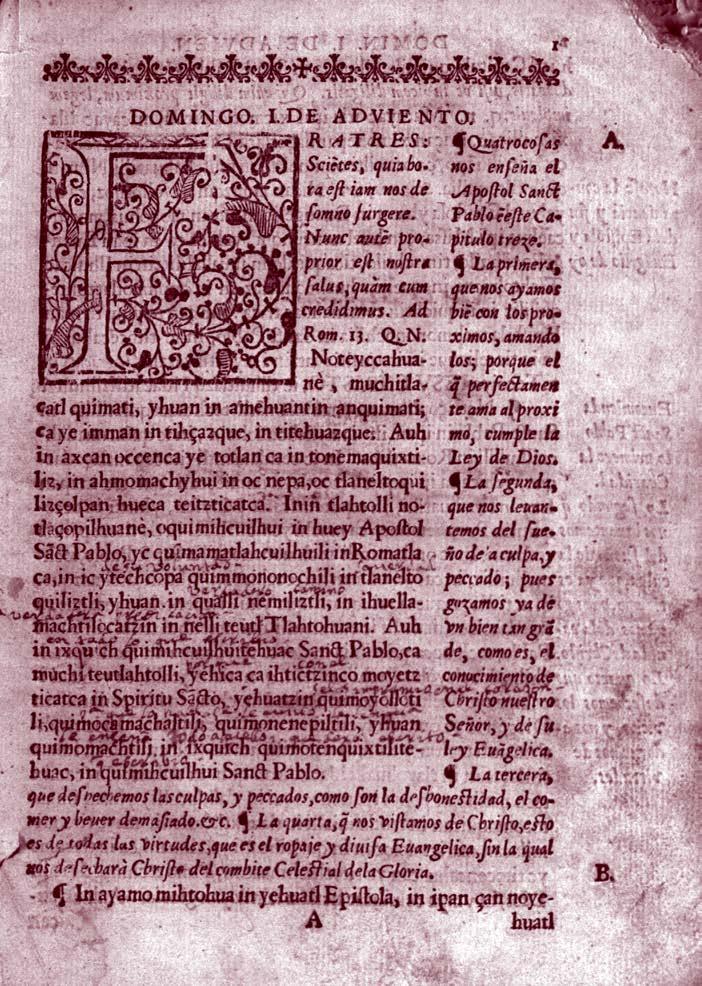 1
DOMINGO. I. DE ADVIENTO.
FRATRES:
Sciētes, quia ho-
ra est iam nos de
somno surgere.
Nunc autē pro-
prior est nostra
salus, quàm cum
credidimus. Ad
Rom. 13. Q. N.
Noteyccahua-
nè, muchitla-
catl quimati, yhuan in amehuantin anquimati;
ca ye imman in tihçazque, in titehuazque. Auh
in axcan occenca ye totlan ca in tonemaquixti-
liz, in ahmomachyhui in oc nepa, oc tlaneltoqui
lizçolpan, hueca teitzticatca. Inin tlahtolli no-
tlaçopilhuanè, oquimihcuilhui in huey Apostol
Sāct Pablo, yc quimamatlahcuilhuili in Romatla
ca, in ic ytechcopa quimmononochili in tlanelto
quiliztli, yhuan in qualli nemiliztli, in ihuella-
machtilòcatzin in nelli teutl Tlahtohuani. Auh
in ixquich quimihcuilhuitehuac Sanct Pablo, ca
muchi teutlahtolli, yehica ca ihtictzinco moyetz
ticatca in Spiritu Sācto, yehuatzin quimoyolloti
li, quimocamachaltili, quimonenepiltili, yhuan
quimomachtili in ixquich quimotenquixtilite-
huac, in quimihcuilhui Sanct Pablo.
A.
¶ Quatro cosas
nos enseña el
Apostol Sanct
Pablo ēeste Ca-
pitulo treze.
¶ La primera,
que nos ayamos
biē con los pro-
ximos, amando
los; porque el
q̄ perfectamen
te ama al proxi
mo, cumple la
Ley de Dios.
¶ La segunda,
que nos leuan-
temos del sue-
ño de a culpa, y
peccado; pues
gozamos ya de
vn bien tan grā
de, como es, el
conocimiento de
Christo nuestro
Señor, y de su
ley Euāgelica.
¶ La tercera,
que deshechemos las culpas, y peccados, como son la deshonestidad, el co-
mer y beuer demasiado. &c. ¶ La quarta, q̄ nos vistamos de Christo, esto
es de todas las virtudes, que es el ropaje y diuisa Euangelica, sin la qual
nos desecharà Christo del combite Celestial dela Gloria.
B.
¶ In ayamo mihtohua in yehuatl Epistola, in ipan çan noye-
A huatl